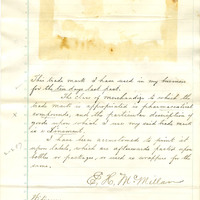 This trade mark I have used in my business
for the ten days last past.
The class of merchandise to which the
trade mark is appropriated is pharmaceutical
compounds, and the particular description of
goods upon which I use my said trade mark
is a liniment.
I have been accustomed to print it
upon labels, which are afterwards pasted upon
bottles or packages, or used as wrappers for the
same.
E. H. McMillan